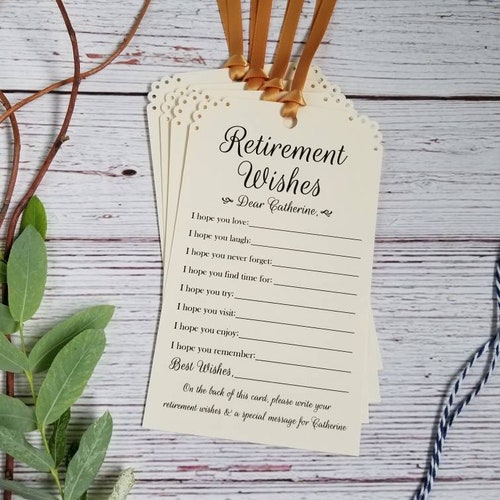 Retirement
Wishes
Dear Catherine,
I hope you love:
I hope you laugh:
I hope you never forget:
I hope you find time for:
I hope you try:
I hope you visit:
I hope you enjoy:
I hope you remember:
Best Wishes,
On the back of this card, please write your
retirement wishes & a special message for Catherine